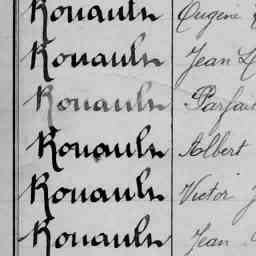 Rouault Eugène
Rouault Jean L
Rouault Parfait
Rouault Albert
Rouault Victor J
Rouault Jean